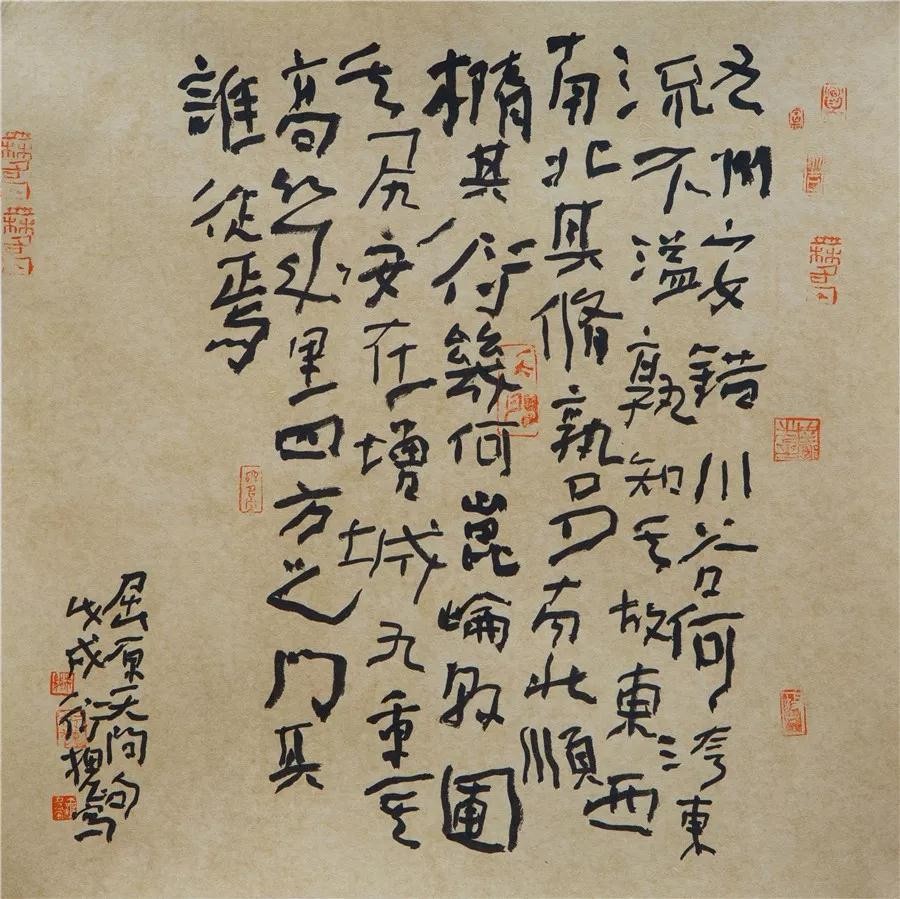 九州安錯川谷何洿東
流不溢孰知其故東西
南北其脩孰多南北順
橢其衍幾何崑崙縣圃
其尻安在增城九重其
高幾里四方之門其
誰從焉
屈原天問句
戊戌